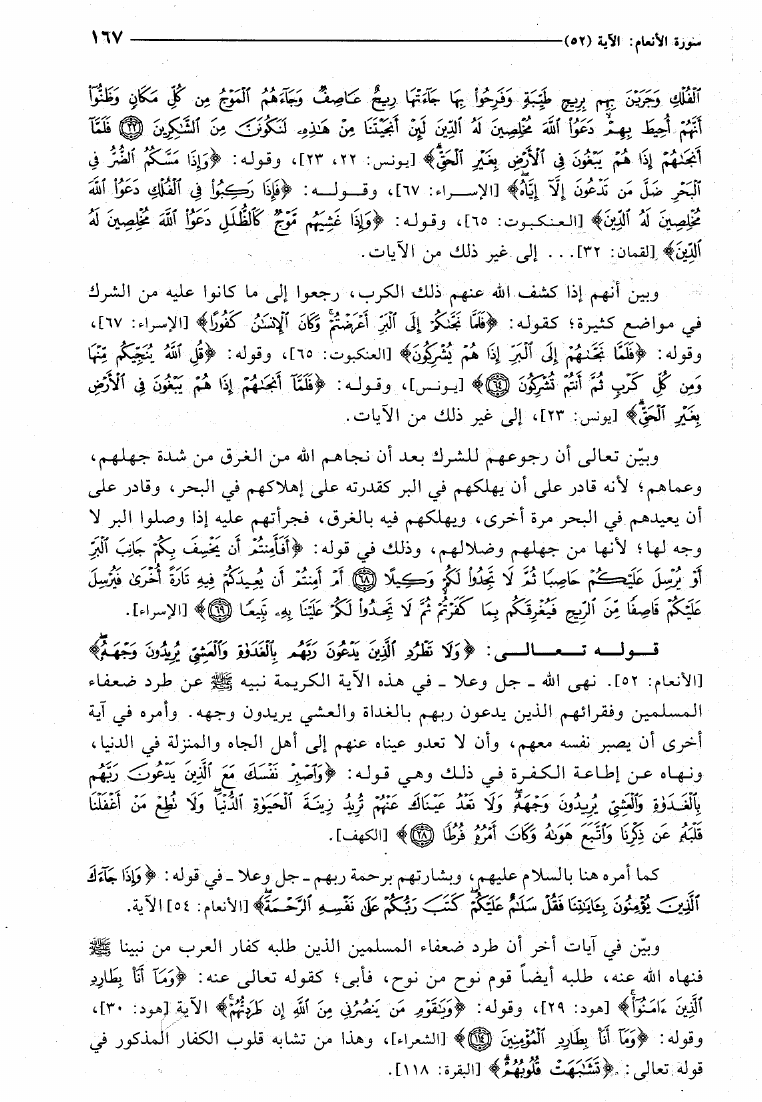 سورة الأنعام: الآية (٥٢) ١٦٧
ٱلْفُلْكِ وَجَرَيْنَ بِهِم بِرِيحٍ طَيِّبَةٍ وَفَرِحُوا۟ بِهَا جَآءَتْهَا رِيحٌ عَاصِفٌ وَجَآءَهُمُ ٱلْمَوْجُ مِن كُلِّ مَكَانٍ وَظَنُّوٓا۟
أَنَّهُمْ أُحِيطَ بِهِمْ دَعَوُا۟ ٱللَّهَ مُخْلِصِينَ لَهُ ٱلدِّينَ لَئِنْ أَنجَيْتَنَا مِنْ هَٰذِهِۦ لَنَكُونَنَّ مِنَ ٱلشَّٰكِرِينَ ﴿٢٢﴾ فَلَمَّآ
أَنجَىٰهُمْ إِذَا هُمْ يَبْغُونَ فِى ٱلْأَرْضِ بِغَيْرِ ٱلْحَقِّ﴾ [يونس: ٢٢، ٢٣]، وقوله: ﴿وَإِذَا مَسَّكُمُ ٱلضُّرُّ فِى
ٱلْبَحْرِ ضَلَّ مَن تَدْعُونَ إِلَّآ إِيَّاهُ﴾ [الإسراء: ٦٧]، وقوله: ﴿فَإِذَا رَكِبُوا۟ فِى ٱلْفُلْكِ دَعَوُا۟ ٱللَّهَ
مُخْلِصِينَ لَهُ ٱلدِّينَ﴾ [العنكبوت: ٦٥]، وقوله: ﴿وَإِذَا غَشِيَهُم مَّوْجٌ كَٱلظُّلَلِ دَعَوُا۟ ٱللَّهَ مُخْلِصِينَ لَهُ
ٱلدِّينَ﴾ [لقمان: ٣٢]... إلى غير ذلك من الآيات.
وبين أنهم إذا كشف الله عنهم ذلك الكرب، رجعوا إلى ما كانوا عليه من الشرك
في مواضع كثيرة؛ كقوله: ﴿فَلَمَّا نَجَّىٰكُمْ إِلَى ٱلْبَرِّ أَعْرَضْتُمْ وَكَانَ ٱلْإِنسَٰنُ كَفُورًا﴾ [الإسراء: ٦٧]،
وقوله: ﴿فَلَمَّا نَجَّىٰهُمْ إِلَى ٱلْبَرِّ إِذَا هُمْ يُشْرِكُونَ﴾ [العنكبوت: ٦٥]، وقوله: ﴿قُلِ ٱللَّهُ يُنَجِّيكُم مِّنْهَا
وَمِن كُلِّ كَرْبٍ ثُمَّ أَنتُمْ تُشْرِكُونَ ﴿٦٤﴾﴾ [يونس]، وقوله: ﴿فَلَمَّآ أَنجَىٰهُمْ إِذَا هُمْ يَبْغُونَ فِى ٱلْأَرْضِ
بِغَيْرِ ٱلْحَقِّ﴾ [يونس: ٢٣]، إلى غير ذلك من الآيات.
وبيّن تعالى أن رجوعهم للشرك بعد أن نجاهم الله من الغرق من شدة جهلهم،
وعماهم؛ لأنه قادر على أن يهلكهم في البر كقدرته على إهلاكهم في البحر، وقادر على
أن يعيدهم في البحر مرة أخرى، ويهلكهم فيه بالغرق، فجرأتهم عليه إذا وصلوا البر لا
وجه لها؛ لأنها من جهلهم وضلالهم، وذلك في قوله: ﴿أَفَأَمِنتُمْ أَن يَخْسِفَ بِكُمْ جَانِبَ ٱلْبَرِّ
أَوْ يُرْسِلَ عَلَيْكُمْ حَاصِبًا ثُمَّ لَا تَجِدُوا۟ لَكُمْ وَكِيلًا ﴿٦٨﴾ أَمْ أَمِنتُمْ أَن يُعِيدَكُمْ فِيهِ تَارَةً أُخْرَىٰ فَيُرْسِلَ
عَلَيْكُمْ قَاصِفًا مِّنَ ٱلرِّيحِ فَيُغْرِقَكُم بِمَا كَفَرْتُمْ ثُمَّ لَا تَجِدُوا۟ لَكُمْ عَلَيْنَا بِهِۦ تَبِيعًا ﴿٦٩﴾﴾ [الإسراء].
قوله تعالى: ﴿وَلَا تَطْرُدِ ٱلَّذِينَ يَدْعُونَ رَبَّهُم بِٱلْغَدَوٰةِ وَٱلْعَشِىِّ يُرِيدُونَ وَجْهَهُۥ﴾
[الأنعام: ٥٢]. نهى الله - جل وعلا - في هذه الآية الكريمة نبيه ﷺ عن طرد ضعفاء
المسلمين وفقرائهم الذين يدعون ربهم بالغداة والعشي يريدون وجهه. وأمره في آية
أخرى أن يصبر نفسه معهم، وأن لا تعدو عيناه عنهم إلى أهل الجاه والمنزلة في الدنيا،
ونهاه عن إطاعة الكفرة في ذلك وهي قوله: ﴿وَٱصْبِرْ نَفْسَكَ مَعَ ٱلَّذِينَ يَدْعُونَ رَبَّهُم
بِٱلْغَدَوٰةِ وَٱلْعَشِىِّ يُرِيدُونَ وَجْهَهُۥ وَلَا تَعْدُ عَيْنَاكَ عَنْهُمْ تُرِيدُ زِينَةَ ٱلْحَيَوٰةِ ٱلدُّنْيَا وَلَا تُطِعْ مَنْ أَغْفَلْنَا
قَلْبَهُۥ عَن ذِكْرِنَا وَٱتَّبَعَ هَوَىٰهُ وَكَانَ أَمْرُهُۥ فُرُطًا ﴿٢٨﴾﴾ [الكهف].
كما أمره هنا بالسلام عليهم، وبشارتهم برحمة ربهم - جل وعلا - في قوله: ﴿وَإِذَا جَآءَكَ
ٱلَّذِينَ يُؤْمِنُونَ بِـَٔايَٰتِنَا فَقُلْ سَلَٰمٌ عَلَيْكُمْ كَتَبَ رَبُّكُمْ عَلَىٰ نَفْسِهِ ٱلرَّحْمَةَ﴾ [الأنعام: ٥٤] الآية.
وبيّن في آيات أخر أن طرد ضعفاء المسلمين الذين طلبه كفار العرب من نبينا ﷺ
فنهاه الله عنه، طلبه أيضاً قوم نوح من نوح، فأبى؛ كقوله تعالى عنه: ﴿وَمَآ أَنَا۠ بِطَارِدِ
ٱلَّذِينَ ءَامَنُوٓا۟﴾ [هود: ٢٩]، وقوله: ﴿وَيَٰقَوْمِ مَن يَنصُرُنِى مِنَ ٱللَّهِ إِن طَرَدتُّهُمْ﴾ الآية [هود: ٣٠]،
وقوله: ﴿وَمَآ أَنَا۠ بِطَارِدِ ٱلْمُؤْمِنِينَ ﴿١١٤﴾﴾ [الشعراء]، وهذا من تشابه قلوب الكفار المذكور في
قوله تعالى: ﴿تَشَٰبَهَتْ قُلُوبُهُمْ﴾ [البقرة: ١١٨].